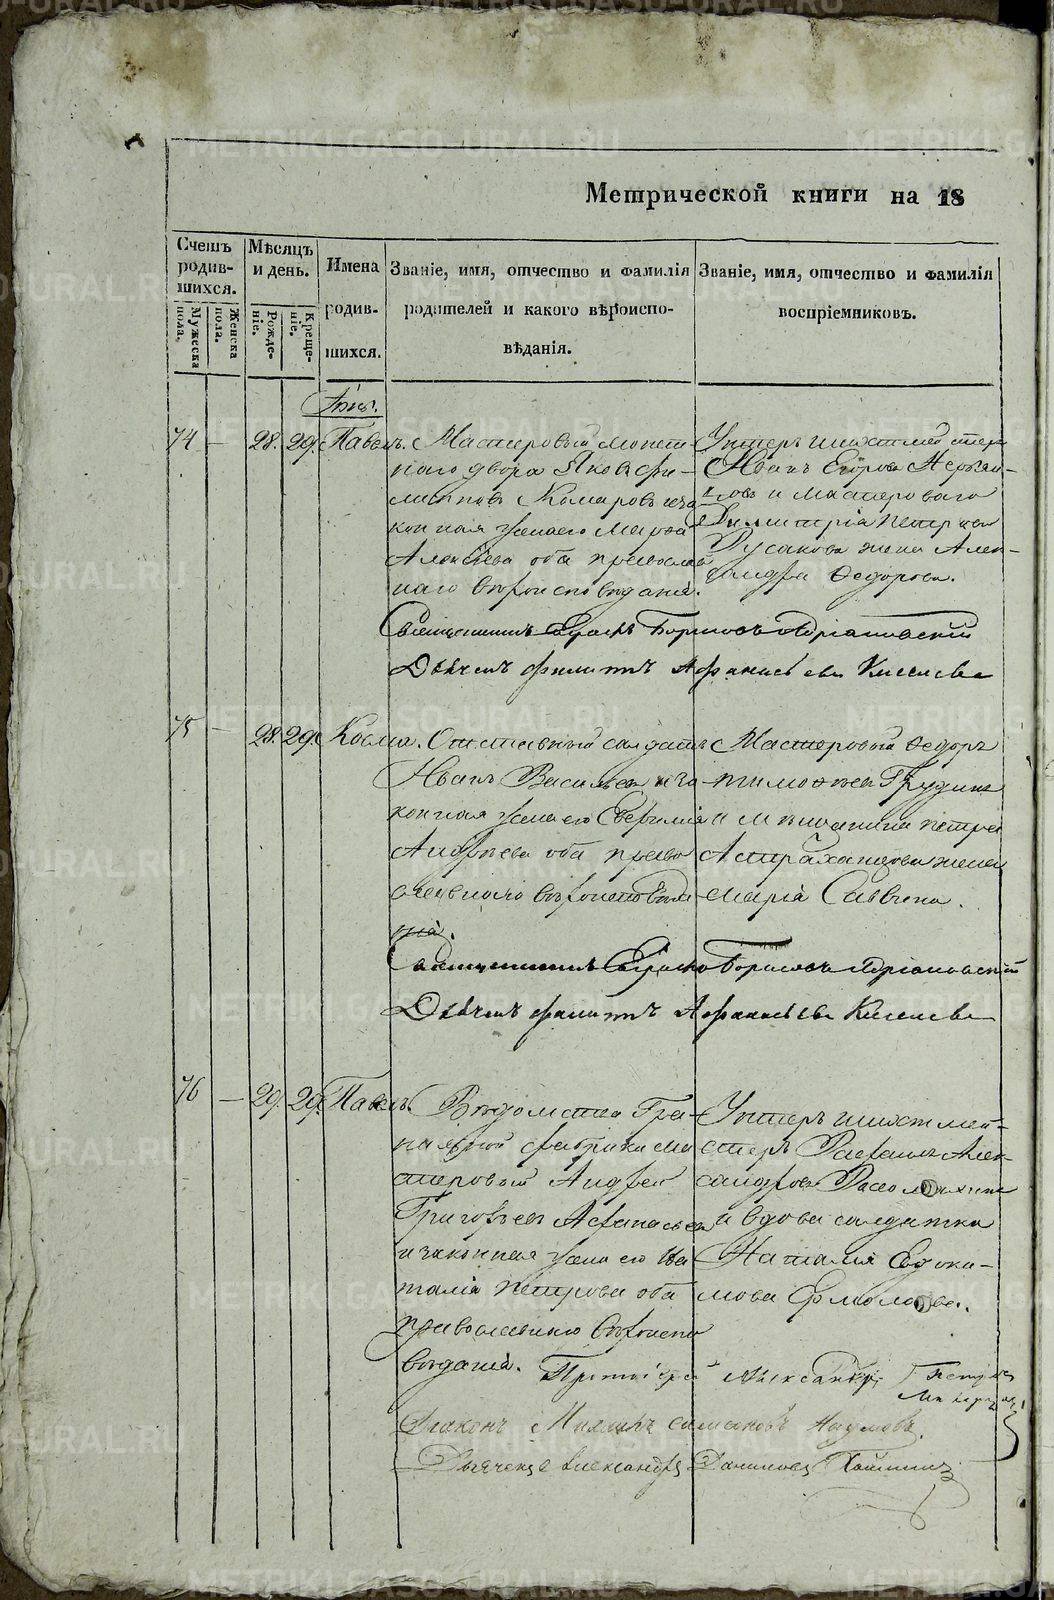 METRIKI.GASO-URAL.RU
Метрической книги на 18
Счетъ родив- шихся.
Мужеска пола.
Женска пола.
Мѣсяцъ и день.
Рожде- ніе.
Креще- ніе.
Имена родив- шихся.
Званіе, имя, отчество и фамилія
родителей и какого вѣроиспо-
вѣданія.
Званіе, имя, отчество и фамилія
воспріемниковъ.
74 — 28. 29. Павелъ. Мастеровый монет-
наго двора Яковъ Фи-
липповъ Комаровъ и за-
конная жена его Марѳа
Алексѣева оба православ-
наго вѣроисповѣданія.
Унтеръ шихтмейстеръ
Иванъ Егоровъ
и мастероваго
Димитрія Петрова
Русакова жена Алек-
сандра Ѳедорова.
Священникъ Борисовъ Адріановскій
Дьячекъ Филиппъ Афанасьевъ Киселевъ
75 — 28. 29. Косма. Отставный солдатъ
Иванъ Васильевъ и за-
конная жена его Евгенія
Андреева оба право-
славнаго вѣроисповѣда-
нія.
Мастеровый Ѳедоръ
Тимоѳеевъ Грудинъ
и мѣщанина Петра
Астраханцова жена
Марія Саввина.
Священникъ Борисовъ Адріановскій
Дьячекъ Филиппъ Афанасьевъ Киселевъ
76 — 29. 29. Павелъ. Вѣдомства Гра-
нильной фабрики ма-
стеровый Андрей
Григорьевъ Афанасьевъ
и законная жена его На-
талія Петрова оба
православнаго вѣроиспо-
вѣданія.
Унтеръ шихтмей-
стеръ Рафаилъ Алек-
сандровъ
и вдова солдатка
Наталія Евдоки-
мова Ермолаева.
Протоіерей Александръ Петровъ
Діаконъ Симеоновъ Наумовъ.
Дьячекъ Александръ Даниловъ